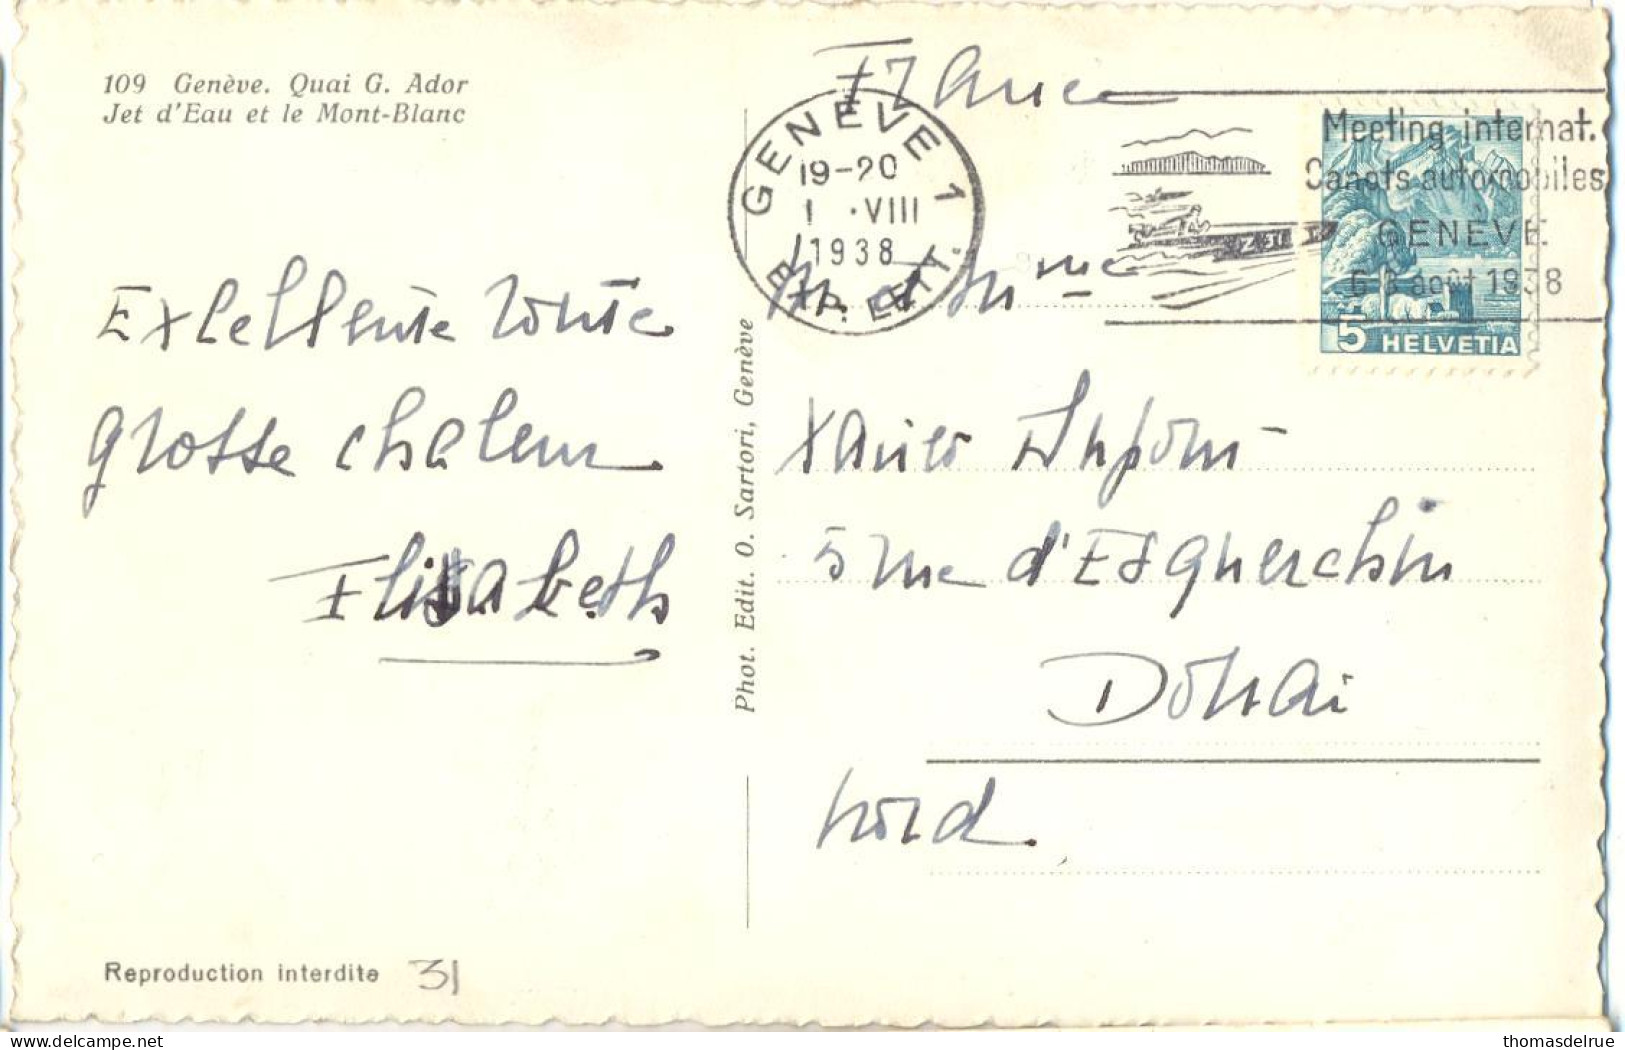 109 Genève. Quai G. Ador
Jet d'Eau et le Mont-Blanc
Excellente route
grosse chaleur
Elisabeth
Reproduction interdite 31
Phot. Edit. O. Sartori, Genève
France
GENÈVE 1
19-20
1 · VIII
1938
EXP. LETT.
Meeting internat.
Canots automobiles
GENÈVE
6-8 août 1938
5 HELVETIA
Xavier Dupont
5 rue d'Esquerchin
Douai
Nord
thomasdelrue